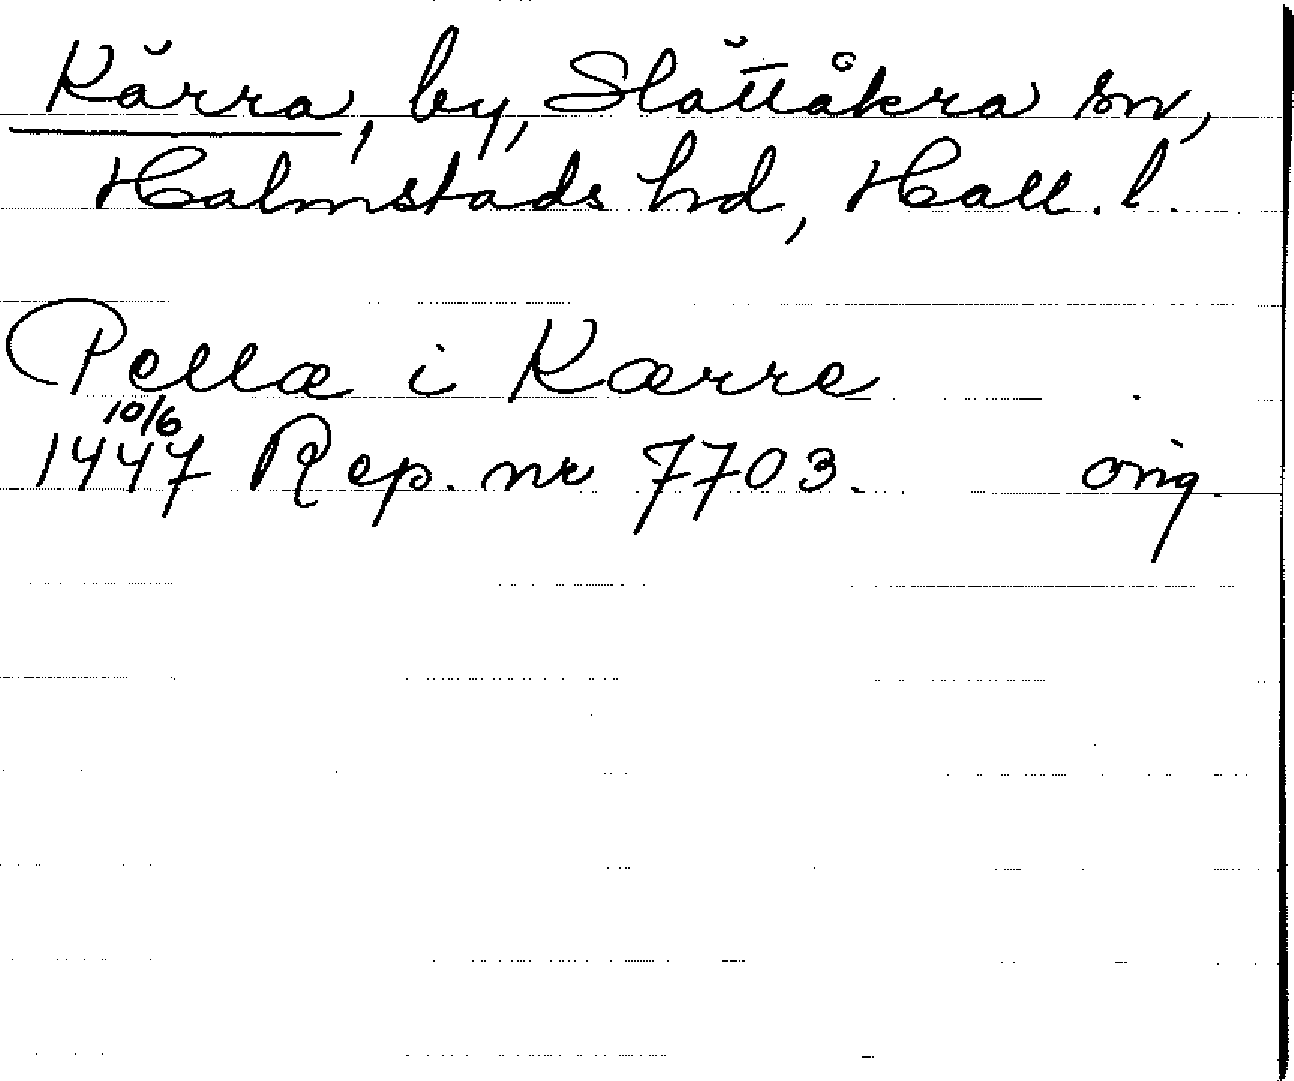 Kärra, by, Slättåkra sn,
Halmstads hd, Hall. l.
Pellæ i Kærre
10/6
1447 Rep. nr 7703. orig.